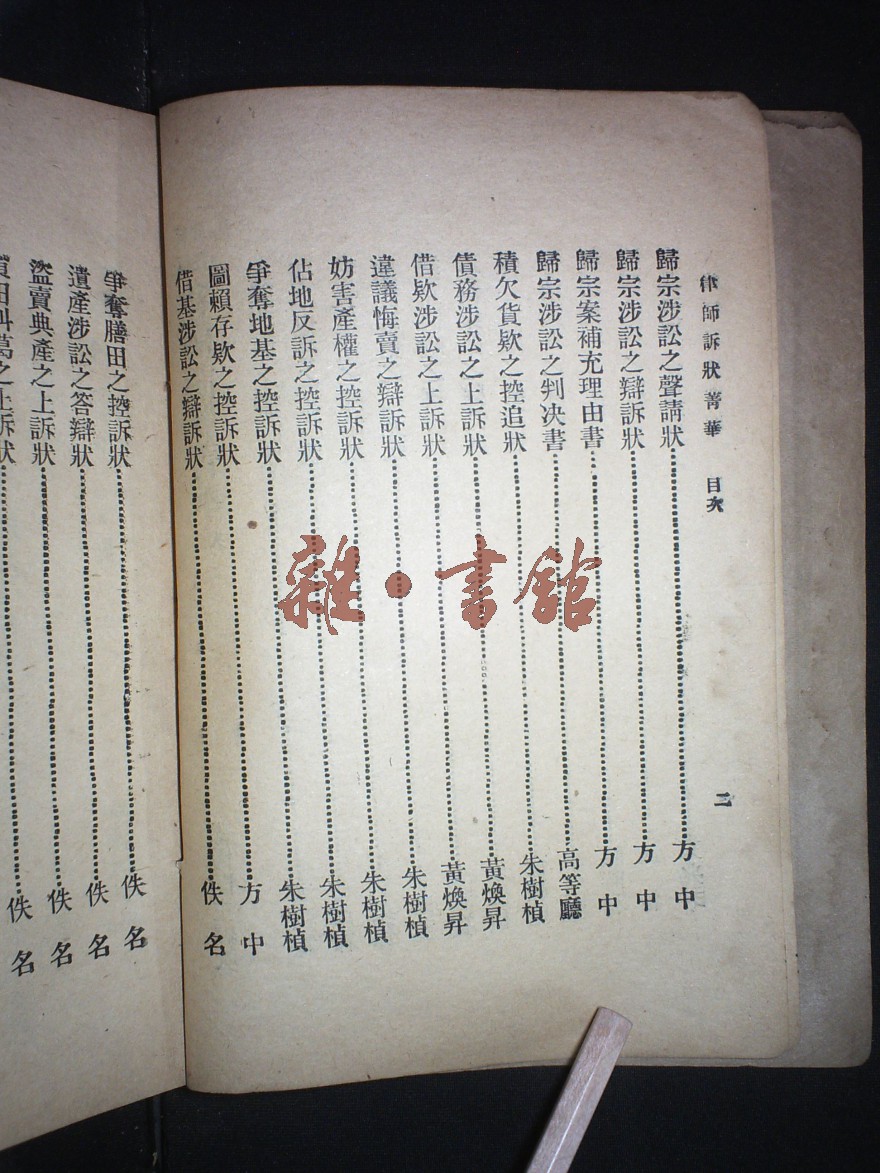 律師訴狀菁華 目次 二
歸宗涉訟之聲請狀 方中
歸宗涉訟之辯訴狀 方中
歸宗案補充理由書 方中
歸宗涉訟之判决書 高等廳
積欠貨欵之控追狀 朱樹楨
債務涉訟之上訴狀 黃煥昇
借欵涉訟之上訴狀 黃煥昇
違議悔賣之辯訴狀 朱樹楨
妨害產權之控訴狀 朱樹楨
佔地反訴之控訴狀 朱樹楨
爭奪地基之控訴狀 朱樹楨
圖賴存欵之控訴狀 方中
借基涉訟之辯訴狀 佚名
爭奪膳田之控訴狀 佚名
遺產涉訟之答辯狀 佚名
盜賣典產之上訴狀 佚名
之上訴狀 佚名
雜·書館